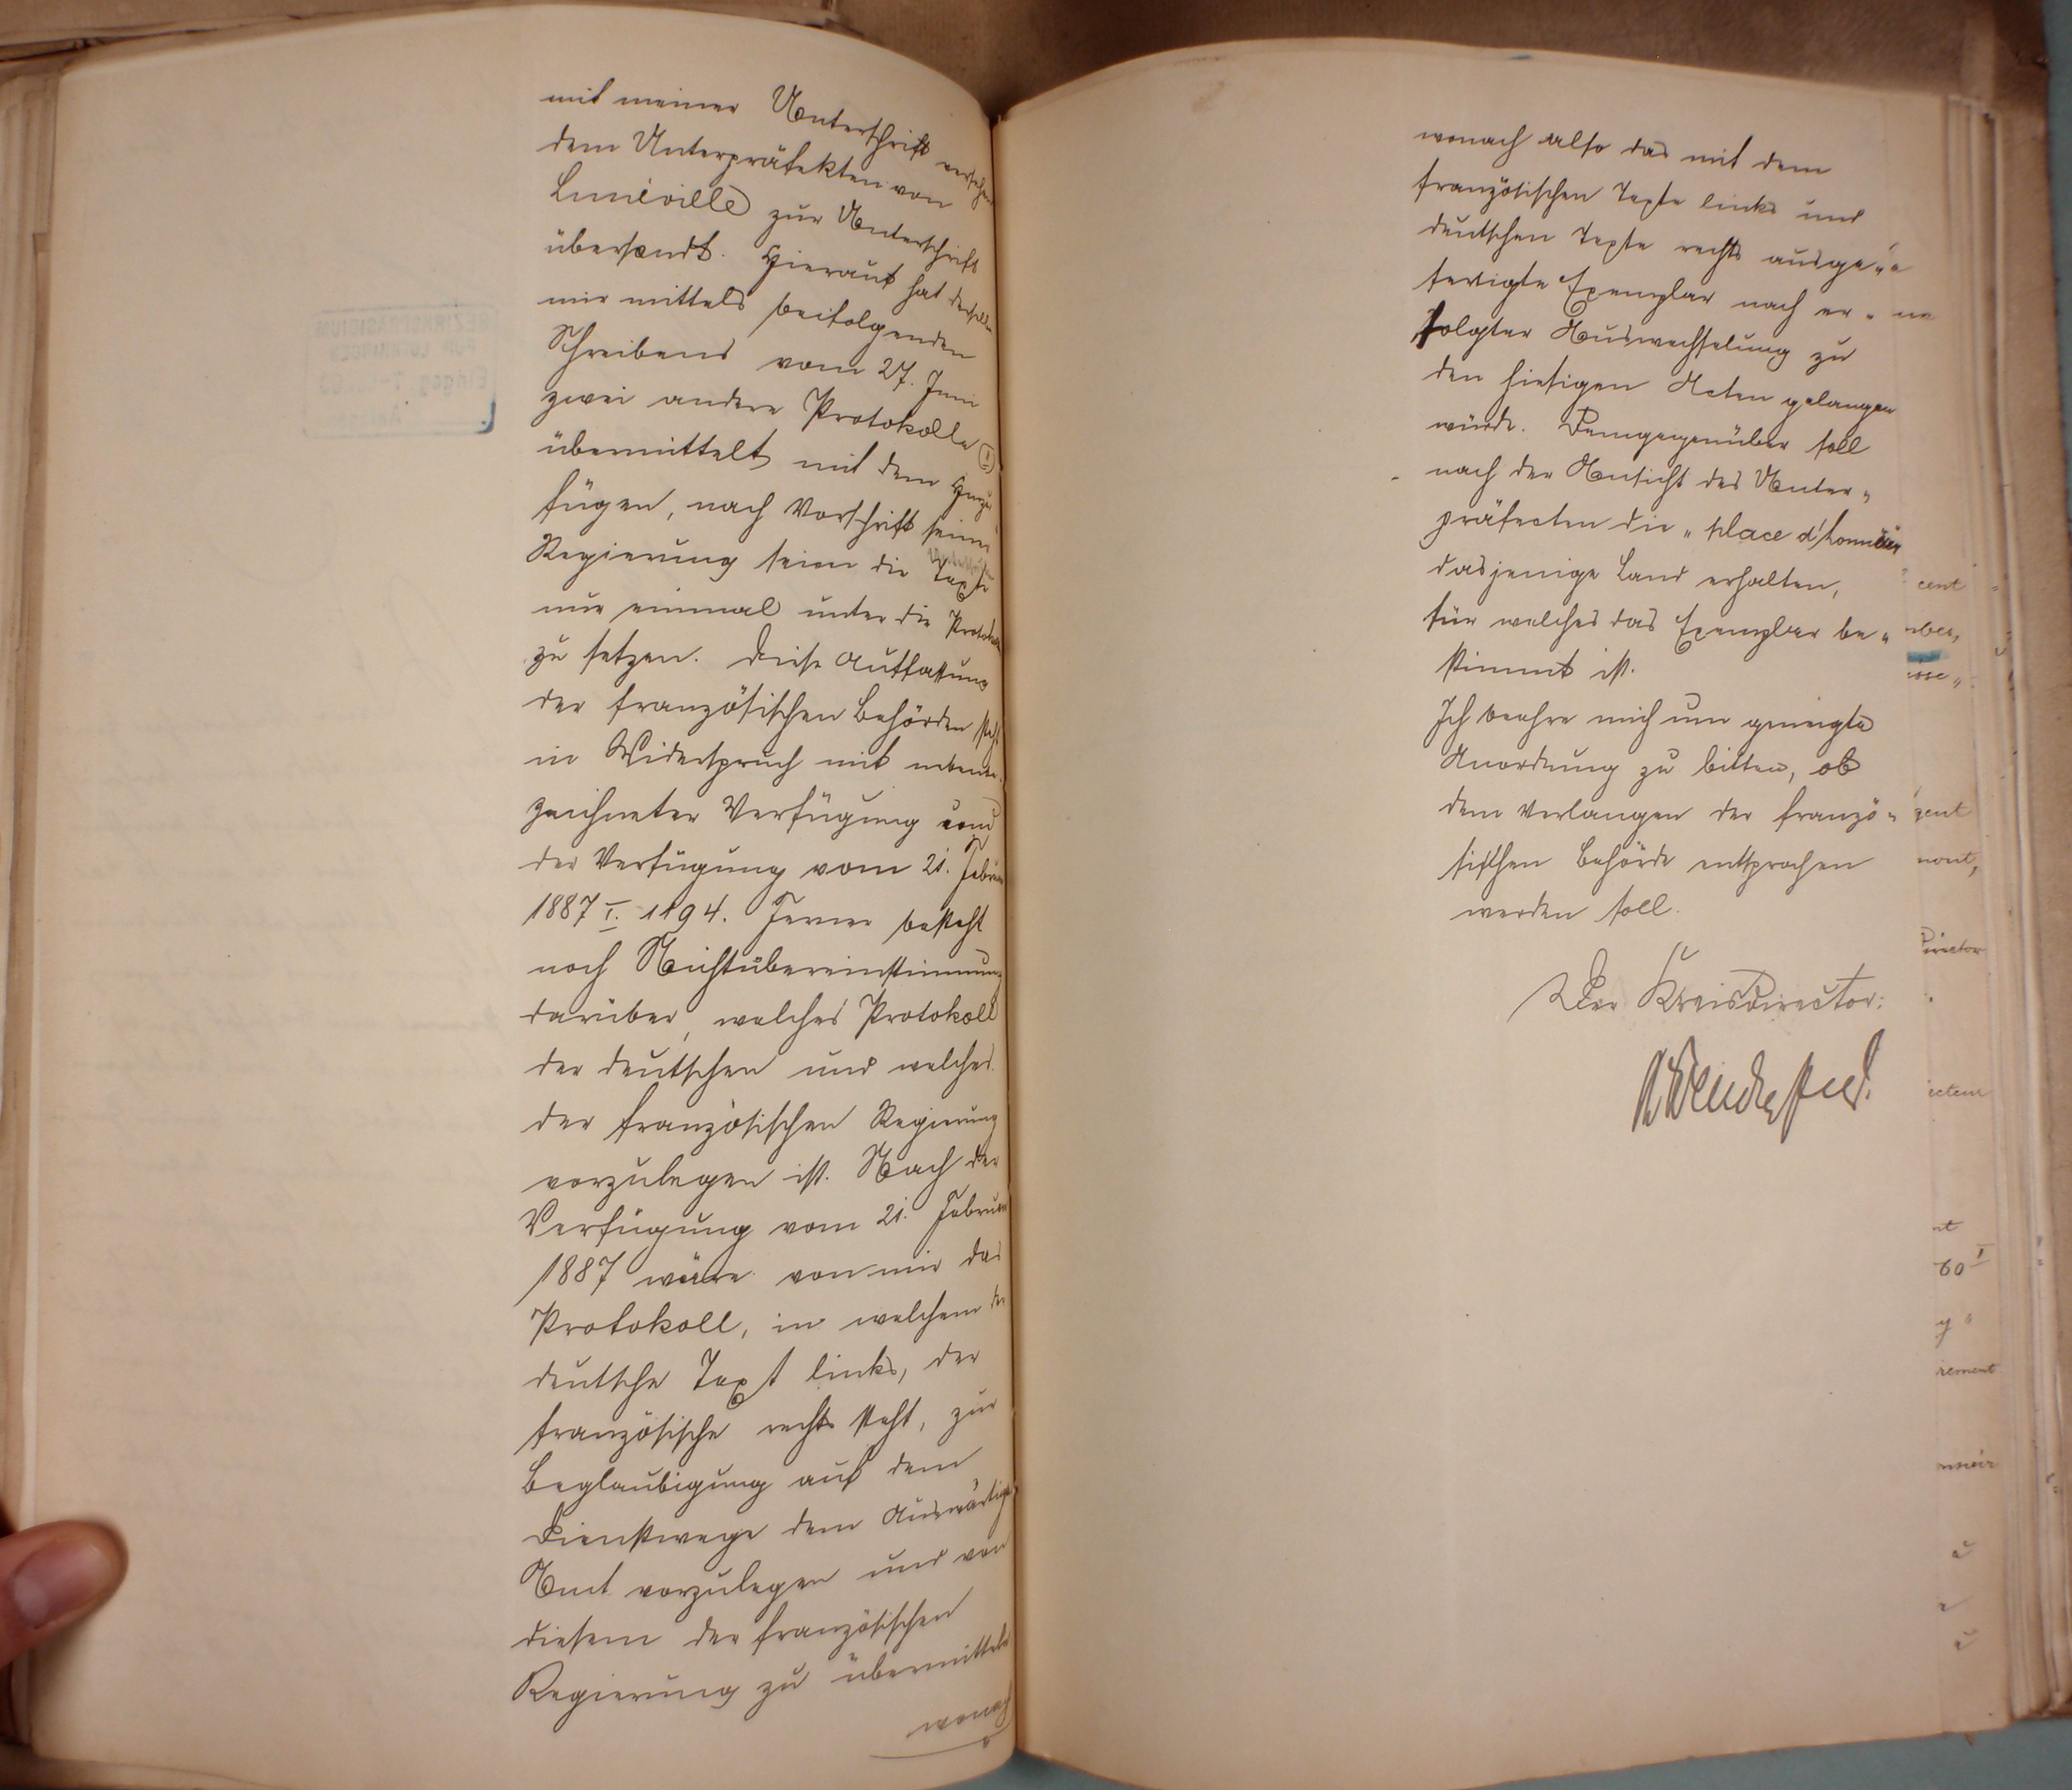 mit meiner Unterschrift versehen
dem Unterpräfekten von
Lunéville zur Unterschrift
übersandt. Hierauf hat derselbe
mir mittels beifolgenden
Schreibens vom 27. Juni
zwei andere Protokolle
übermittelt mit dem Hinzu
fügen, nach Vorschrift seiner
Regierung seien die Texte
nur einmal unter die Protokolle
zu setzen. Diese Auffassung
der französischen Behörden steht
in Widerspruch mit nebenbe
zeichneter Verfügung und
der Verfügung vom 21. Februar
1887 I. 1194. Ferner besteht
noch Nichtübereinstimmung
darüber, welches Protokoll
der deutschen und welches
der französischen Regierung
vorzulegen ist. Nach der
Verfügung vom 21. Februar
1887 wäre von mir das
Protokoll, in welchem der
deutsche Text links, der
französische rechts steht, zur
Beglaubigung auf dem
Dienstwege dem Auswärtigen
Amt vorzulegen und von
diesem der französischen
Regierung zu übermitteln
wonach
wonach also das mit dem
französischen Texte links und
deutschen Texte rechts ausge„
fertigte Exemplar nach er„
folgter Auswechselung zu
den hiesigen Acten gelangen
würde. Demgegenüber soll
nach der Ansicht des Unter„
präfecten die „place d'honneur
dasjenige Land erhalten,
für welches das Exemplar be„
stimmt ist.
Ich beehre mich um geneigte
Anordnung zu bitten, ob
dem Verlangen der franzö„
sischen Behörde entsprochen
werden soll.
Der Kreisdirector: